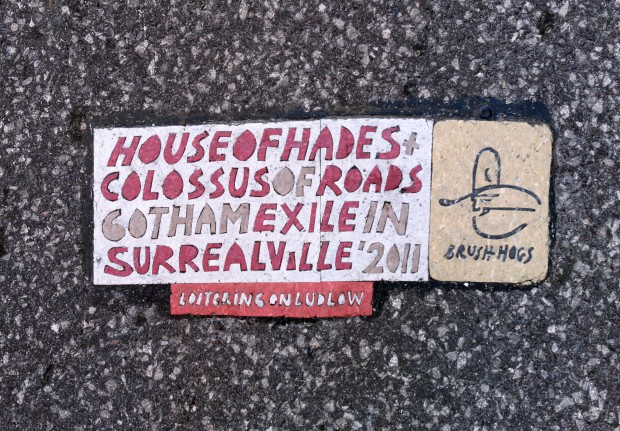 HOUSE OF HADES +
COLOSSUS OF ROADS
GOTHAM EXILE IN
SURREALVILLE '2011
LOITERING ON LUDLOW
BRUSH-HOGS